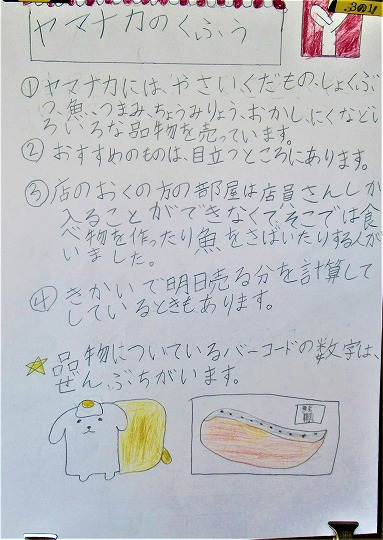 ヤマナカのくふう
①ヤマナカには、やさい、くだもの、しょくぶ
つ、魚、つまみ、ちょうみりょう、おかし、にくなどい
ろいろな品物を売っています。
②おすすめのものは、目立つところにあります。
③店のおくの方の部屋は店員さんしか
入ることができなくて、そこでは食
べ物を作ったり魚をさばいたりする人が
いました。
④きかいで明日売る分を計算して
しているときもあります。
☆品物についているバーコードの数字は、
ぜんぶちがいます。